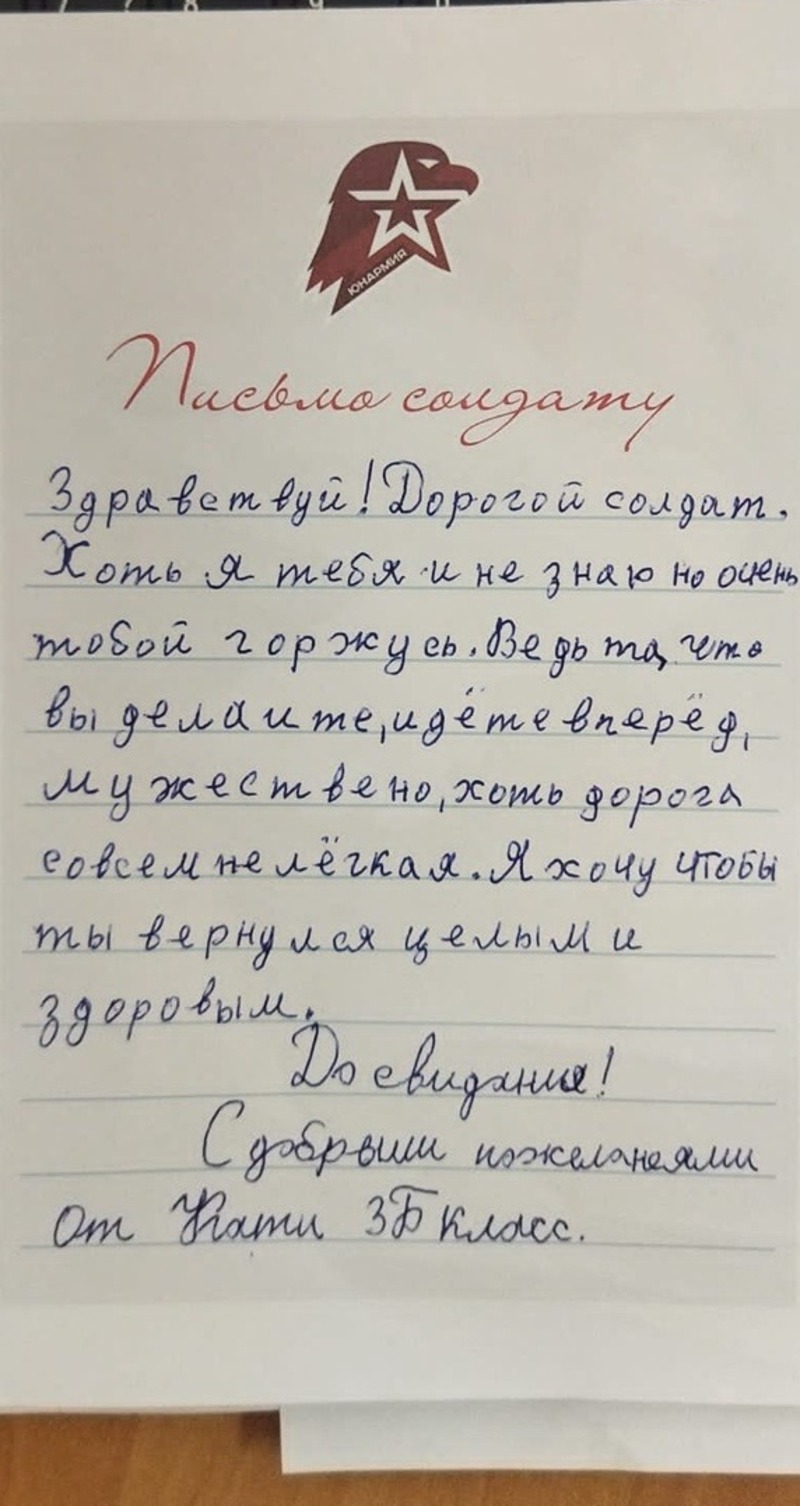 ЮНАРМИЯ
Письмо солдату
Здравствуй! Дорогой солдат.
Хоть я тебя и не знаю но очень
тобой горжусь. Ведь та, что
вы делаите, идёте вперёд,
мужествено, хоть дорога
совсем не лёгкая. Я хочу чтобы
ты вернулся целым и
здоровым.
До свидания!
С добрыми пожеланеями
От Кати 3Б класс.